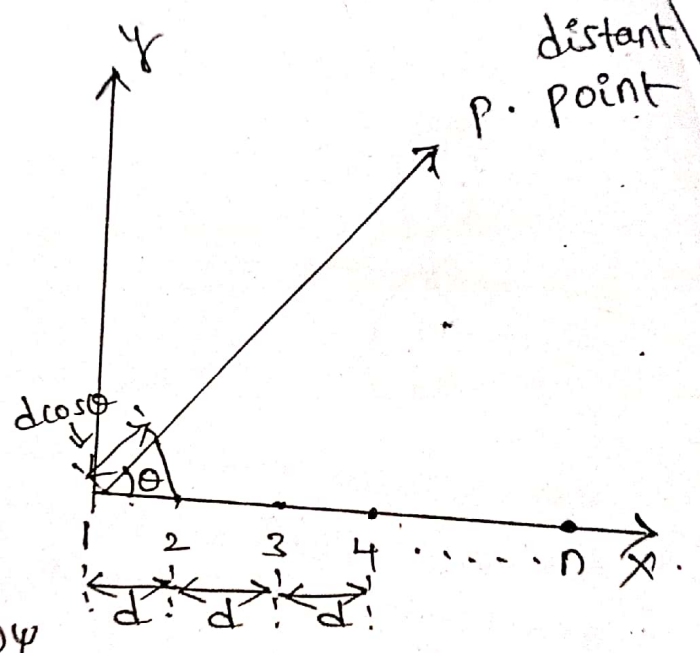 y
distant
p. point
dcosθ
θ
1 2 3 4 ...... n X.
d d d
)ψ